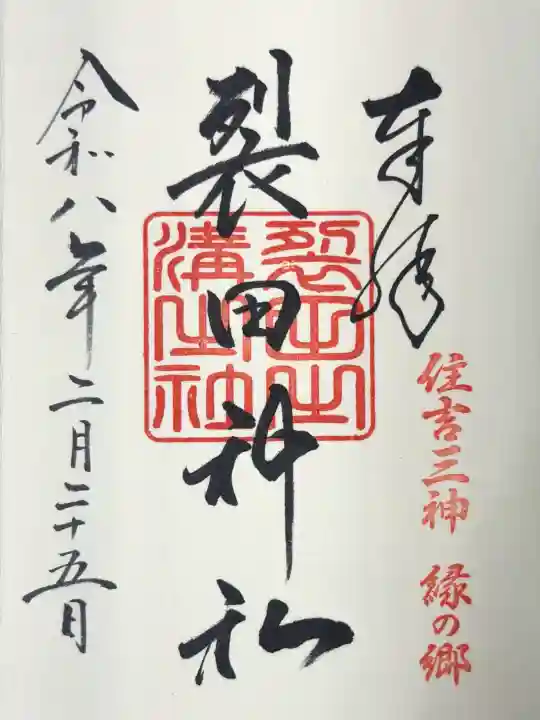 奉拝
住吉三神 縁の郷
裂田神社
裂田
溝
社
令和八年二月二十五日